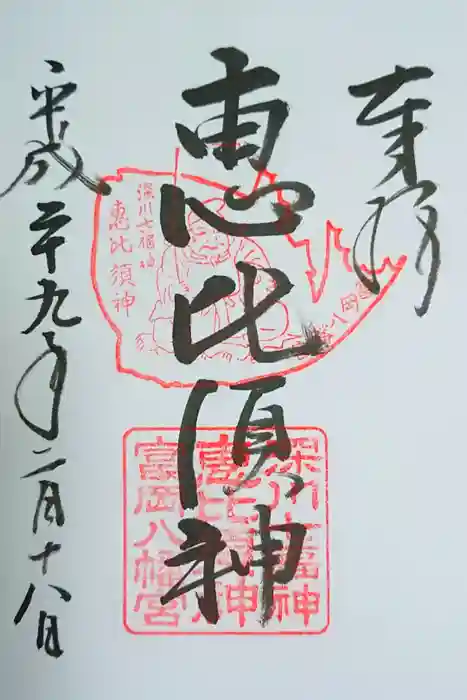 奉拝
恵比須神
平成二十九年二月十八日
深川七福神
恵比須神
深川七福神
恵比須神
富岡八幡宮